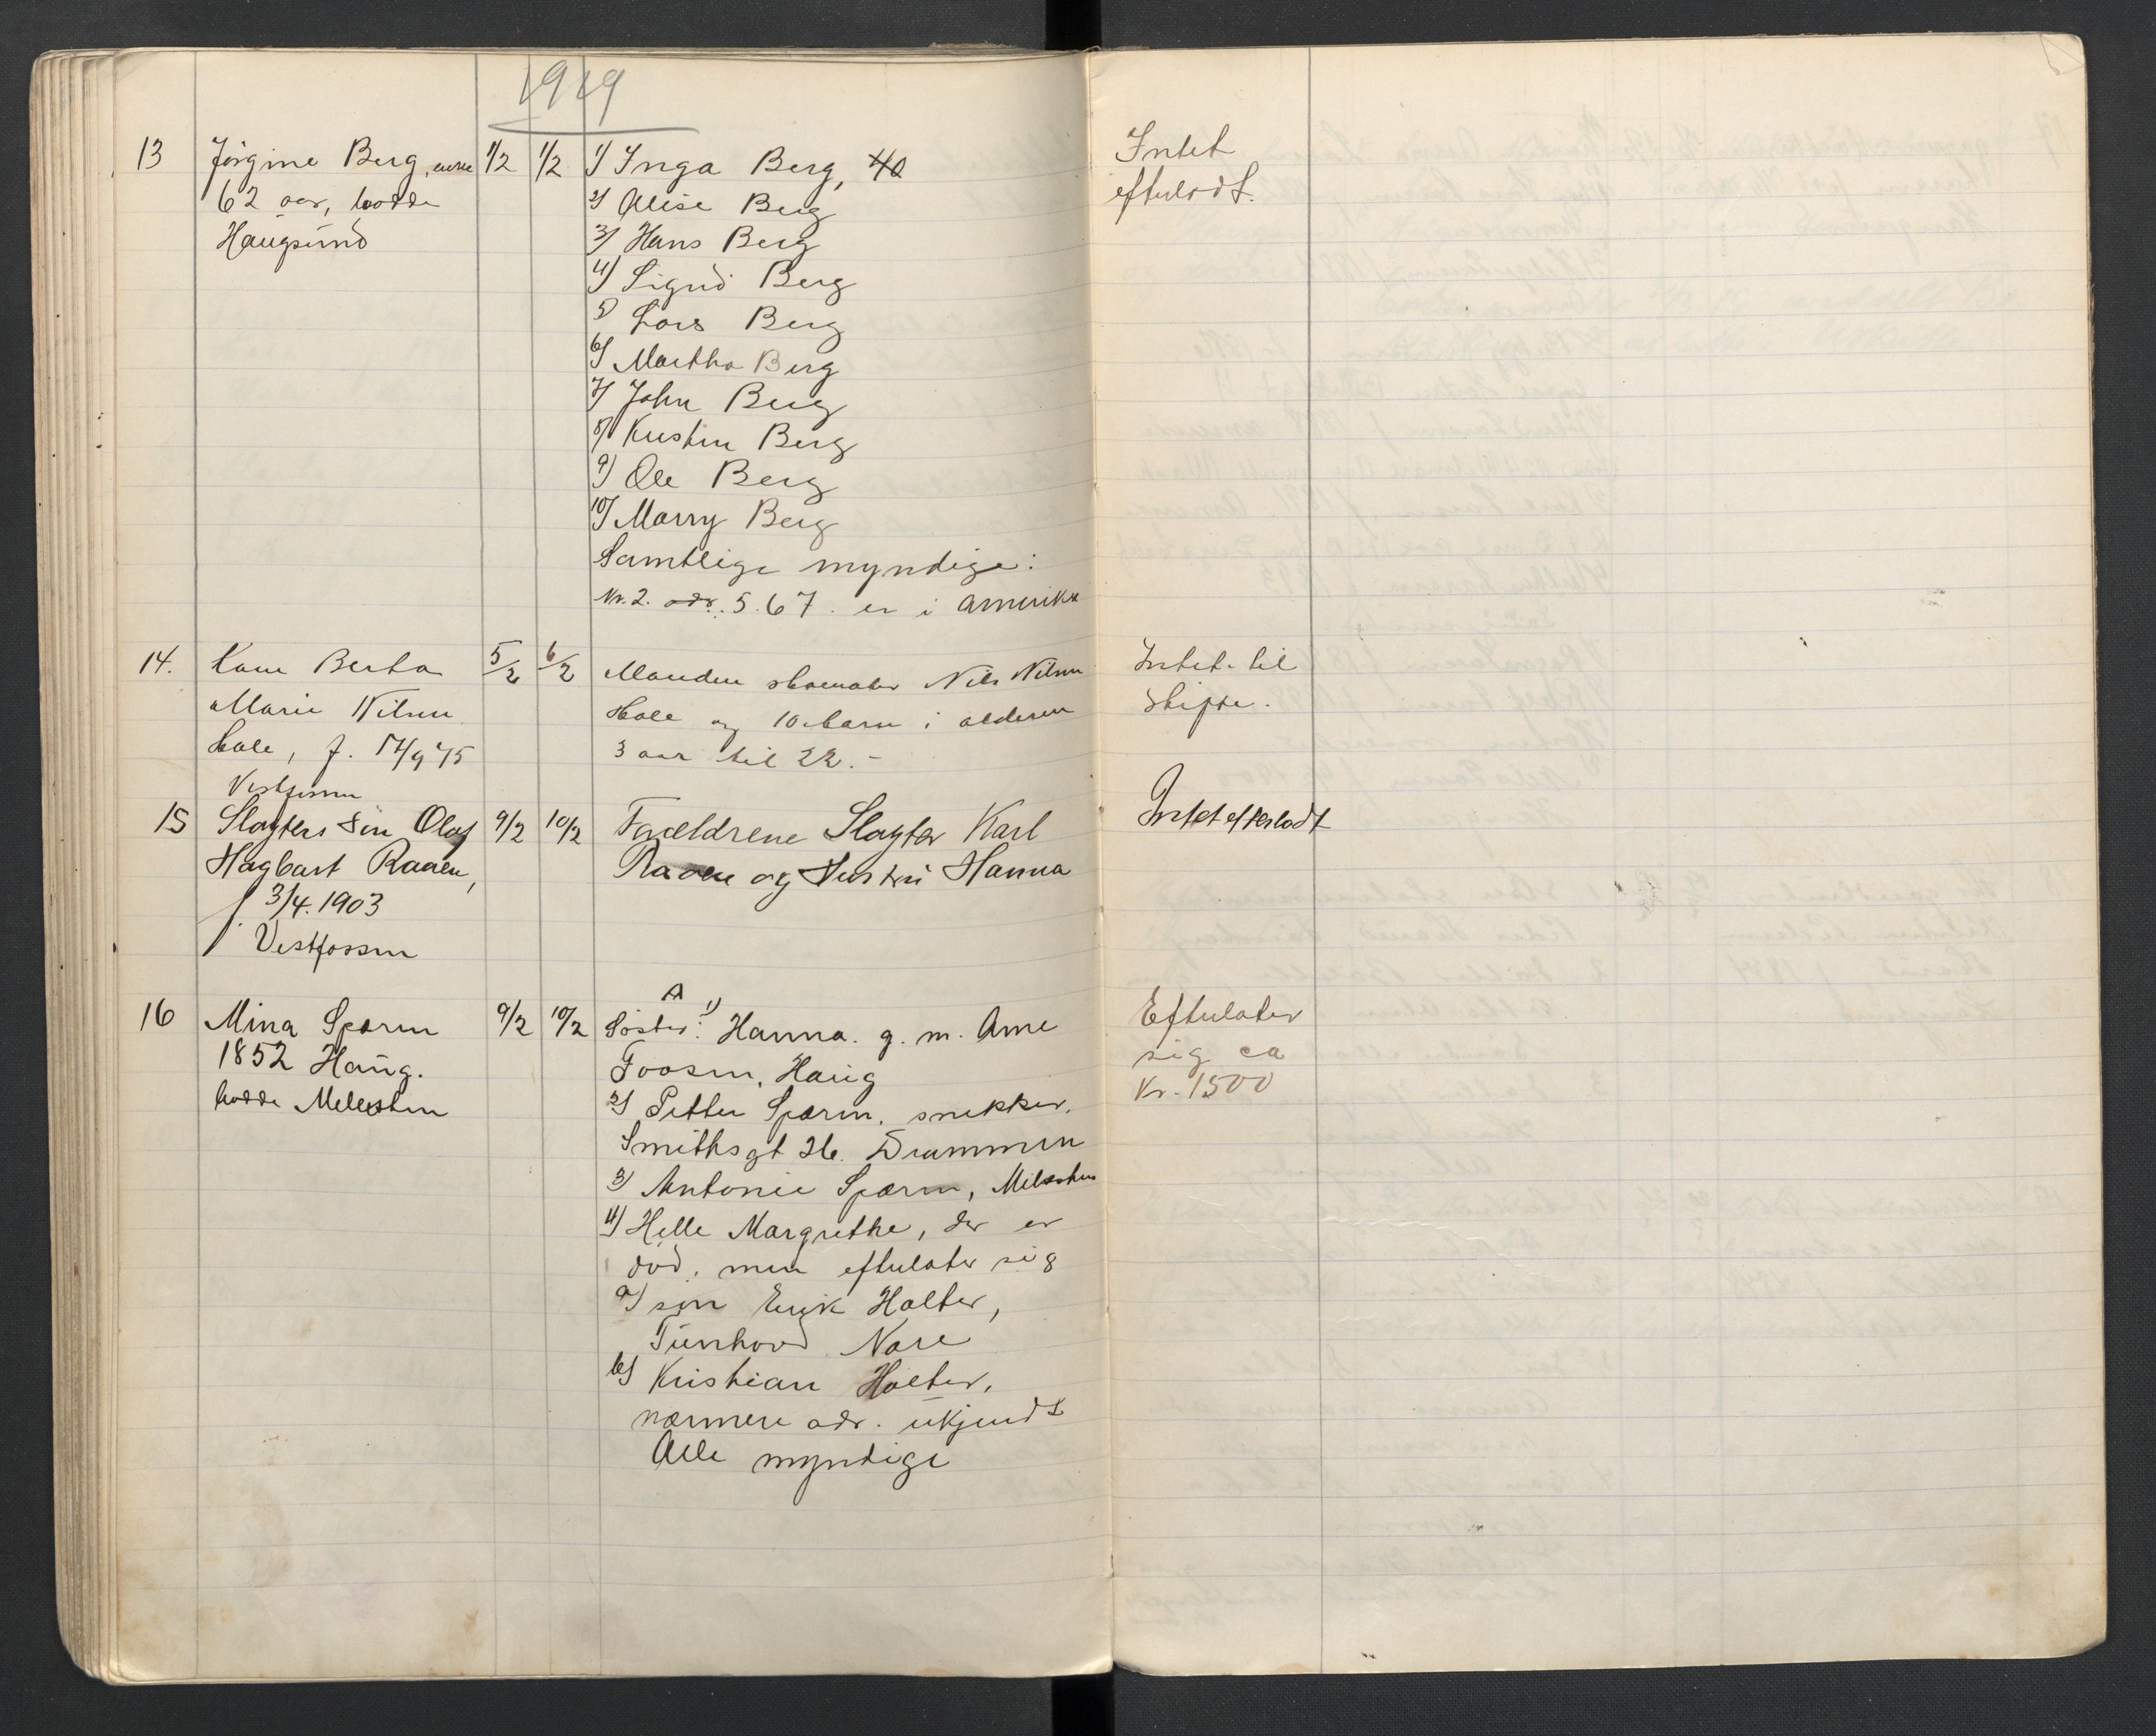 1919
13 Jørgine Berg, enke 1/2 1/2 1) Inga Berg, 40 Intet
62 aar, bodde 2) Alise Berg efterladt.
Haugsund 3) Hans Berg
4) Sigrid Berg
5) Lars Berg
6) Martha Berg
7) John Berg
8) Kristen Berg
9) Ole Berg
10) Marry Berg
Samtlige myndige:
Nr. 2. 5. 6 7. er i Amerika
14. Kone Berta 5/2 6/2 Manden skomaker Nils Nilsen Intet til
Marie Nilsen Hole og 10 barn i alderen skifte.
Hole, f. 9 75 3 aar til 22.-
Vestfossen
15 Slagters søn Olaf 9/2 10/2 Forældrene Slagter Karl Intet efterladt
Hagbart Raaen, Raaen og Hustru Hanna
f. 3/4. 1903
Vestfossen
16 Mina Sparm 9/2 10/2 A Søster: 1) Hanna. g. m. Arne Efterlater
1852 Haug. Foosen, Haug sig ca
bodde Millesten 2) Petter Sparm, snekker, Kr. 1500
Smithsgt 26. Drammen
3) Antonie Sparm,
4) Helle Margrethe, der er
død, men efterlater sig
a) søn Erik Holter,
Tunhovd Nore
b) Kristian Holter,
nærmere adr. ukjendt
Alle myndige